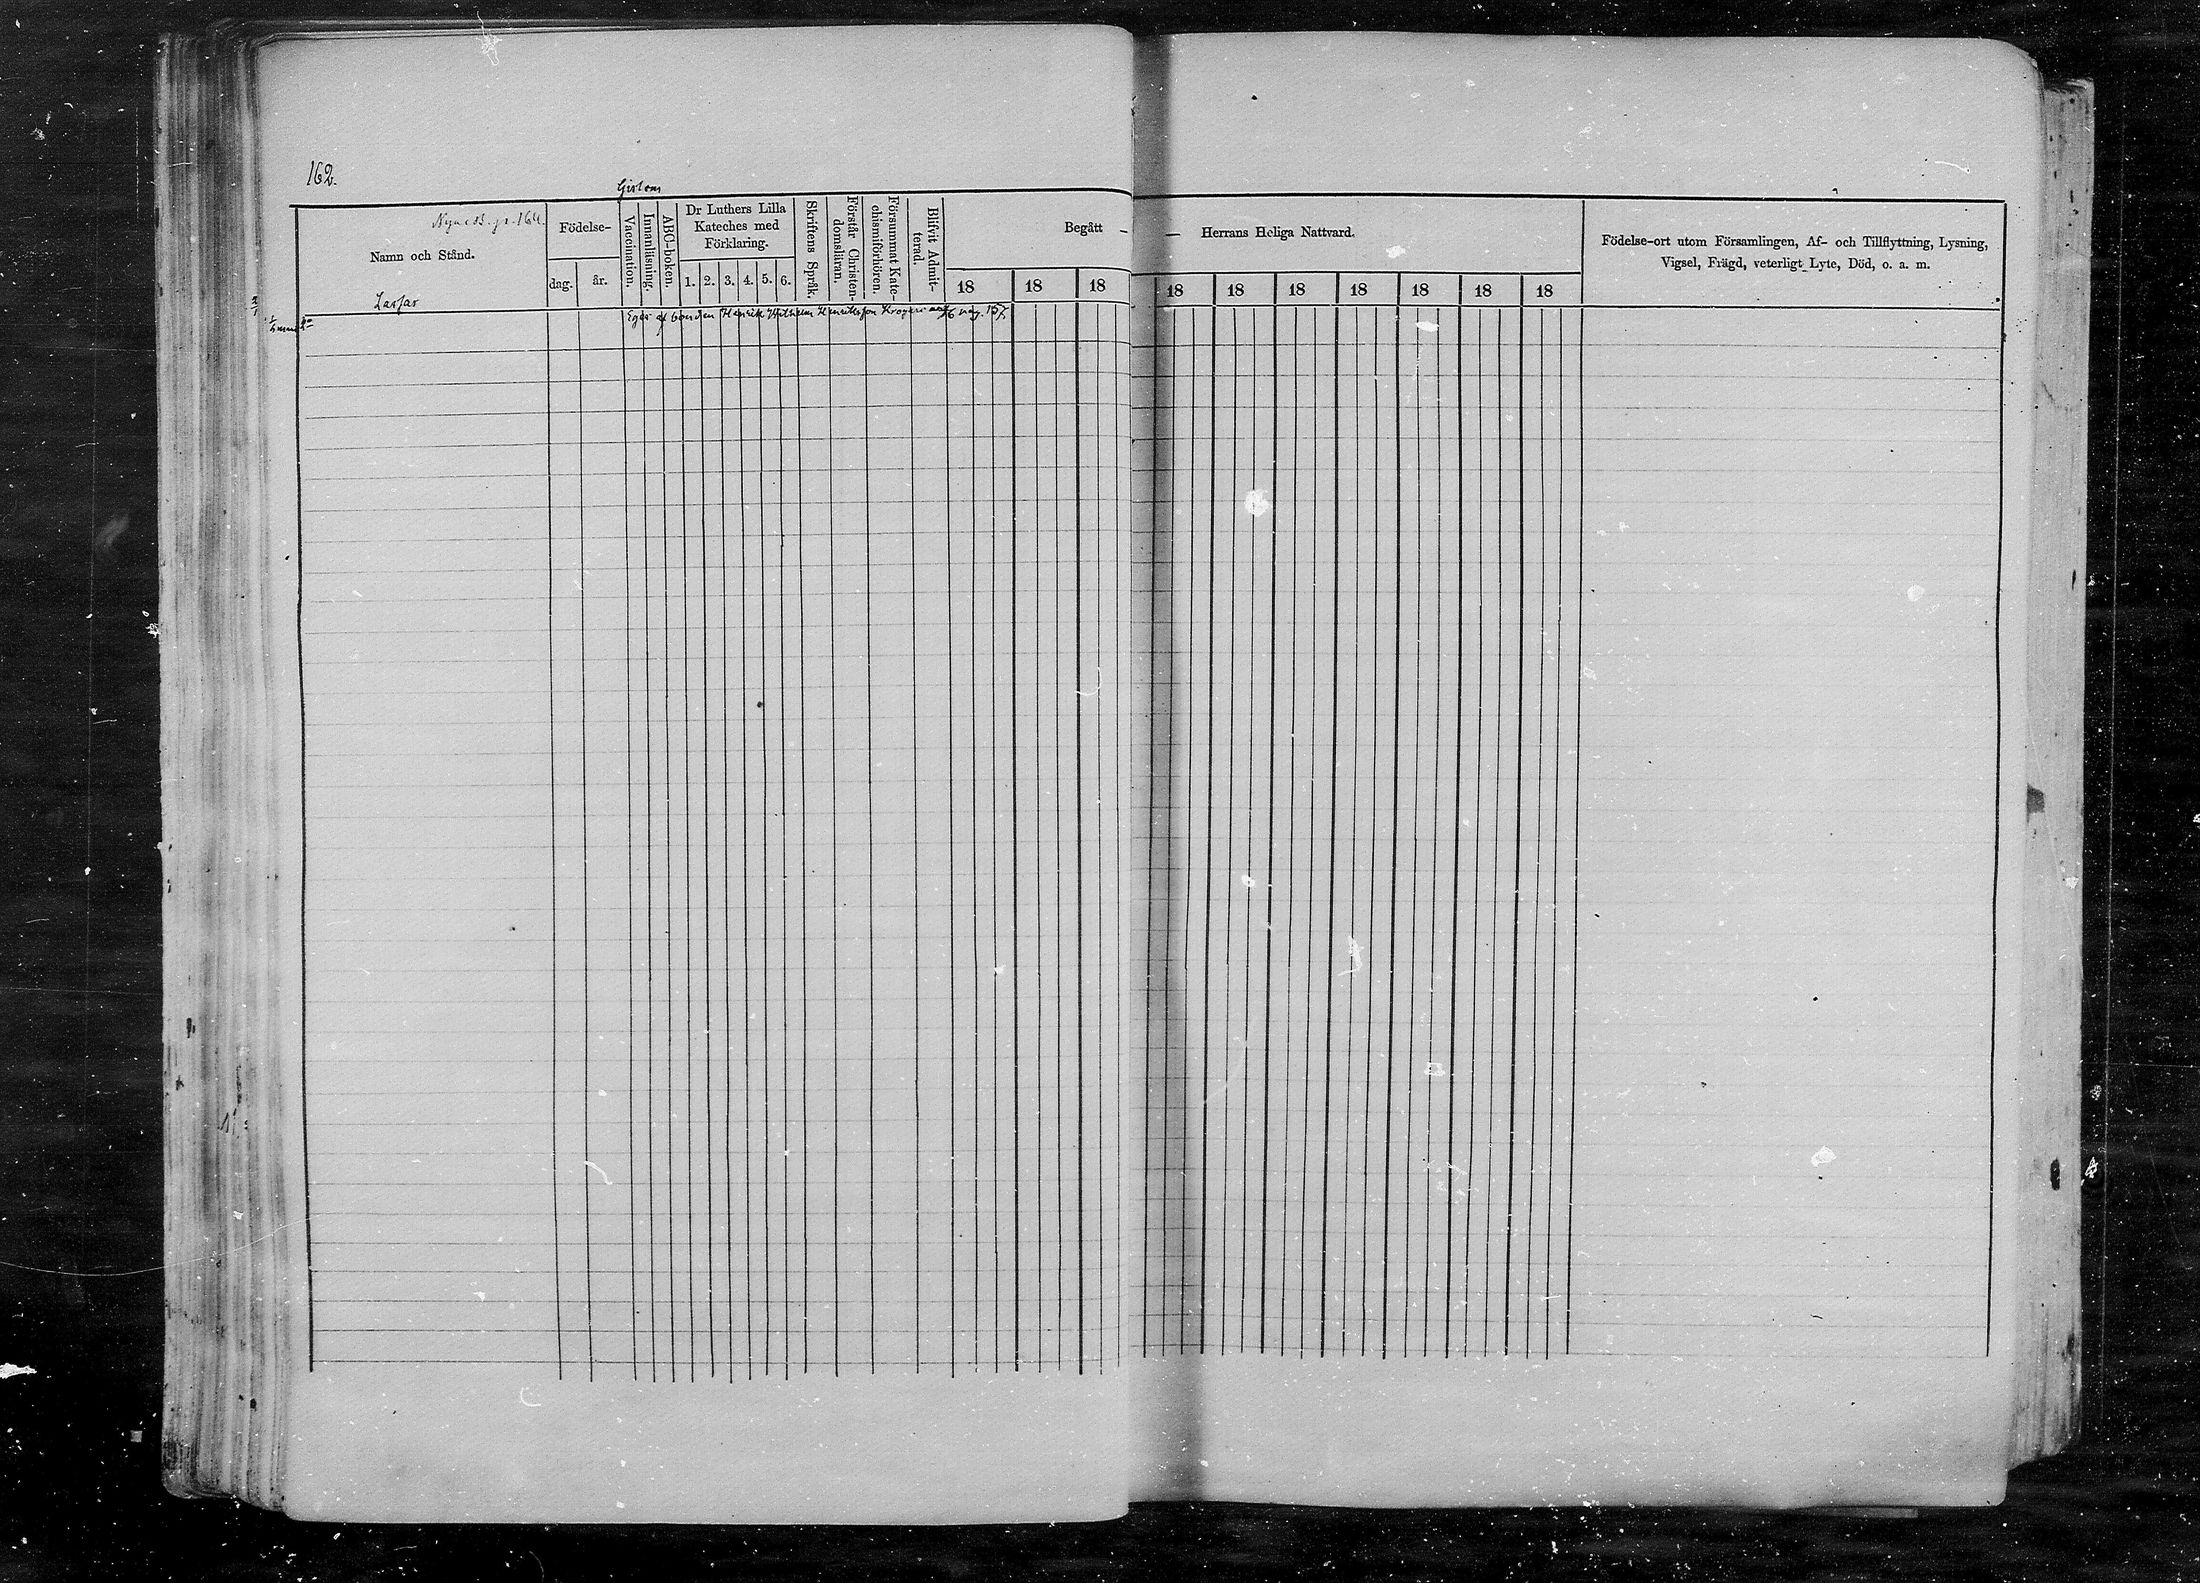 162.
Nyness. p. 164.
Namn och Stånd.
Födelse-
dag. år.
Vaccination.
Innanläsning.
ABC-boken.
Dr Luthers Lilla
Kateches med
Förklaring.
1. 2. 3. 4. 5. 6.
Skriftens Språk.
Förstår Christen-
domsläran.
Försummat Kate-
chismiförhören.
Blifvit Admit-
terad.
Begått —
— Herrans Heliga Nattvard.
18 18 18 18 18 18 18 18 18 18
Födelse-ort utom Församlingen, Af- och Tillflyttning, Lysning,
Vigsel, Frägd, veterligt Lyte, Död, o. a. m.
Lassas
Eges af bonden Henrik Wilhelm Henriksson